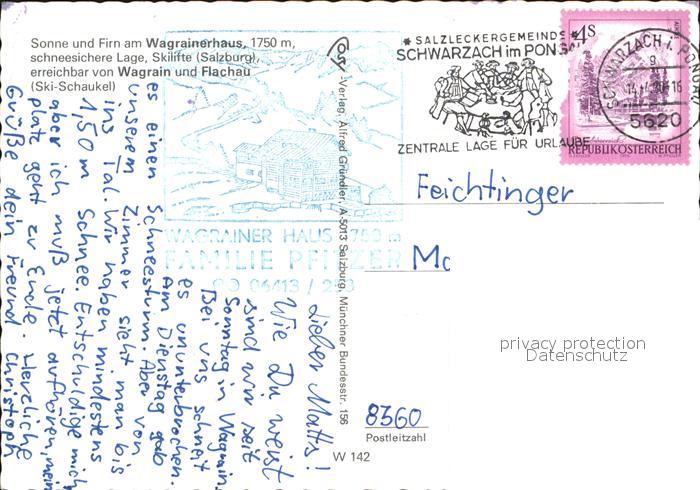 Sonne und Firn am Wagrainerhaus, 1750 m,
schneesichere Lage, Skilifte (Salzburg),
erreichbar von Wagrain und Flachau
(Ski-Schaukel)
* SALZLECKERGEMEINDE *
SCHWARZACH im PONGAU
ZENTRALE LAGE FÜR URLAUBE
4S
REPUBLIK ÖSTERREICH
SCHWARZACH i. PONGAU
5620
WAGRAINER HAUS 1750 m
FAMILIE PFITZER
Cosy-Verlag, Alfred Gründler, A-5013 Salzburg, Münchner Bundesstr. 156
Feichtinger
8360
Postleitzahl
W 142
privacy protection
Datenschutz
Lieber Matts!
Wie Du weist
sind wir seit
Sonntag in Wagrain.
Bei uns schneit
es ununterbrochen.
Am Dienstag gab
es einen Schneesturm. Aber von
unserem Zimmer sieht man bis
ins Tal. Wir haben mindestens
1,50 m Schnee. Entschuldige mich
aber ich muß jetzt aufhören, mein
platz geht zu Ende. Herzliche
Grüße dein Freund Christoph